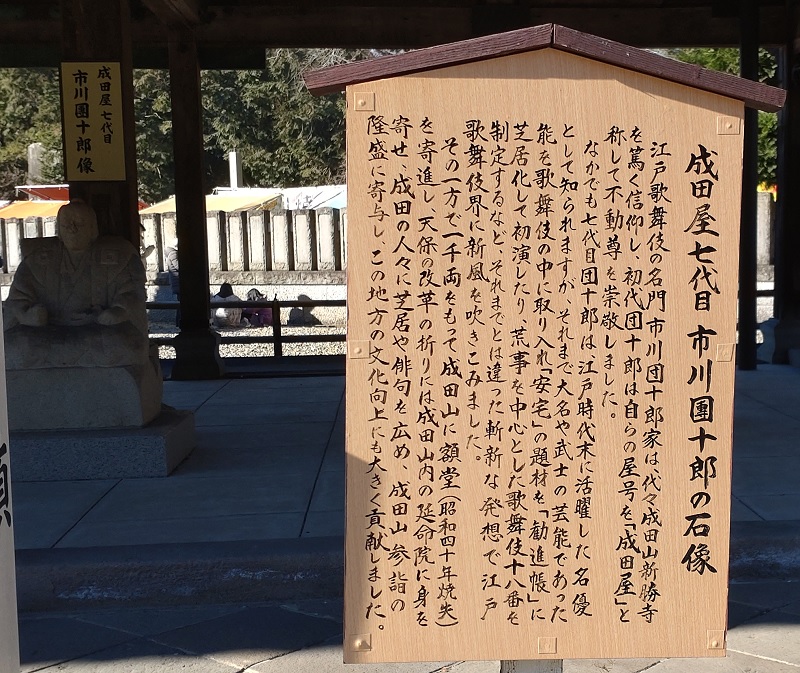 成田屋七代目 市川團十郎の石像
江戸歌舞伎の名門市川団十郎家は、代々成田山新勝寺
を篤く信仰し、初代団十郎は自らの屋号を「成田屋」と
称して不動尊を崇敬しました。
なかでも七代目団十郎は、江戸時代末に活躍した名優
として知られますが、それまで大名や武士の芸能であった
能を歌舞伎の中に取り入れ「安宅」の題材を「勧進帳」に
芝居化して初演したり、荒事を中心とした歌舞伎十八番を
制定するなど、それまでとは違った斬新な発想で江戸
歌舞伎界に新風を吹きこみました。
その一方で一千両をもって成田山に額堂(昭和四十年焼失)
を寄進し、天保の改革の折りには成田山内の延命院に身を
寄せ、成田の人々に芝居や俳句を広め、成田山参詣の
隆盛に寄与し、この地方の文化向上にも大きく貢献しました。
成田屋 七代目
市川團十郎像